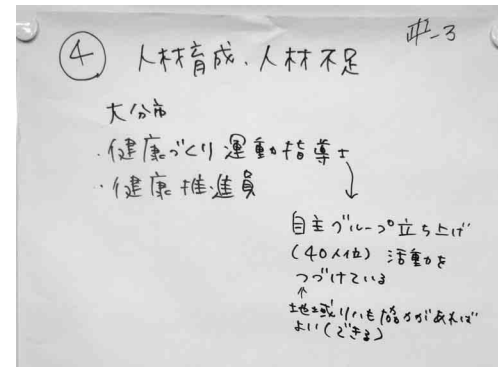 #2-3
④ 人材育成、人材不足
大分市
・健康づくり運動指導士
・健康推進員
↓
自主グループ立ち上げ
(40人位) 活動を
つづけている
↑
地域リハも協力があれば
よい(できる)